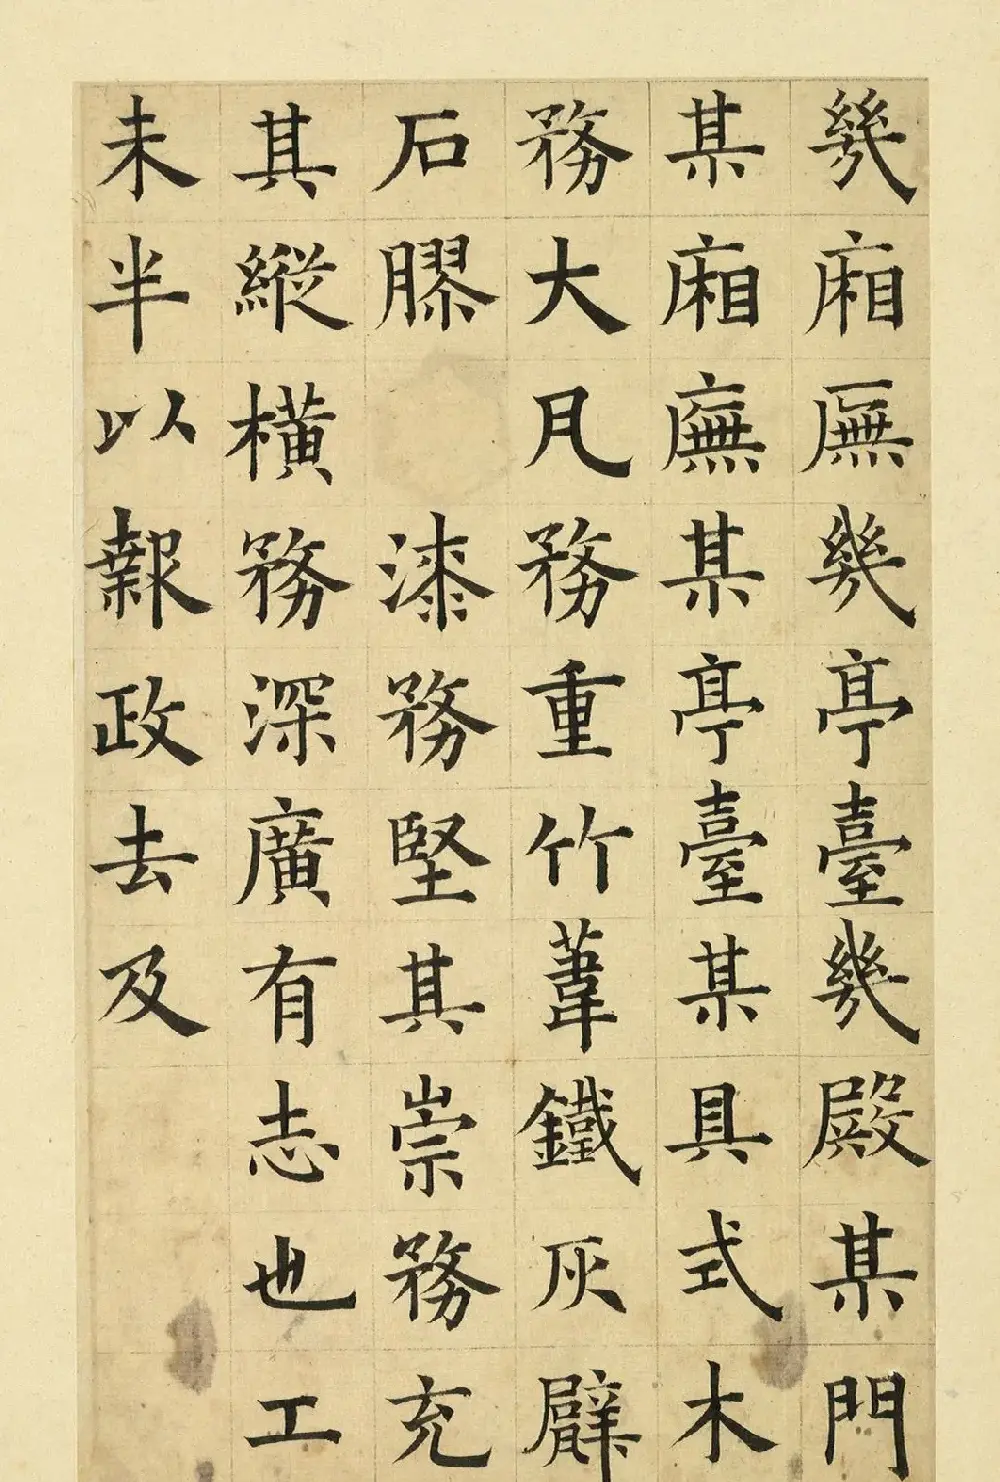 幾廂廡幾亭臺幾殿某門
某廂廡某亭臺某具式木
務大凡務重竹葦鐵灰臂
石膠漆務堅其崇務充
其縱橫務深廣有志也工
未半以報政去及